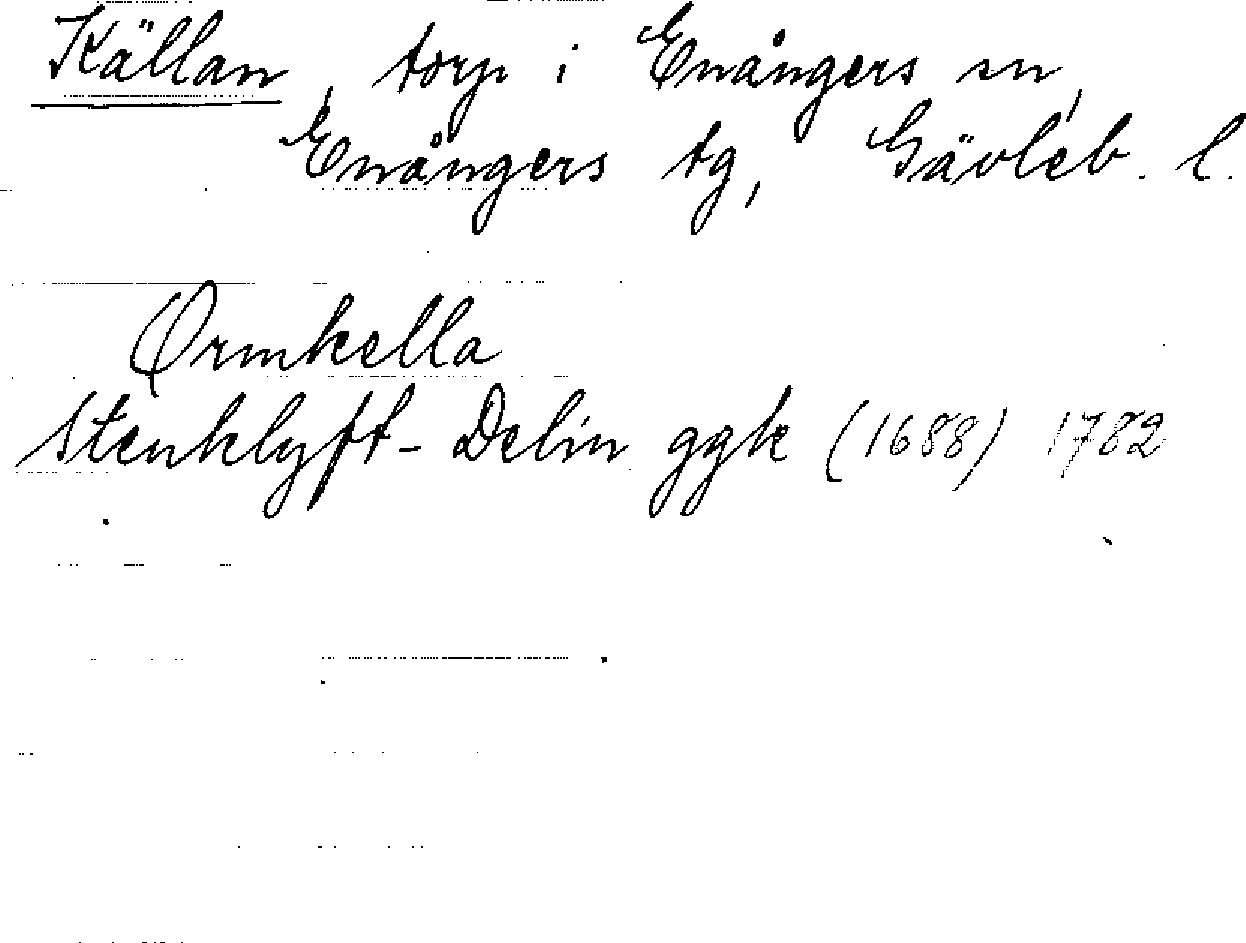 Källan, torp i Enångers sn,
Enångers tg, Gävleb. l.
Ormkella
Stenklyft- Delin ggk (1688) 1782